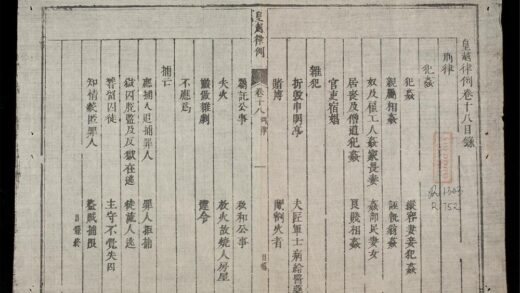 皇越律例卷十八目錄
刑律
犯姦
犯姦 縱容妻妾犯姦
親屬相姦 誣執翁姦
奴及雇工人姦家長妻 姦部民妻女
居喪及僧道犯姦 良賤相姦
官吏宿娼
雜犯
拆毀申明亭 夫匠軍士病給醫藥
賭博 閹割火者
皇越律例 卷十八
囑託公事 私和公事
失火 放火故燒人房屋
搬做雜劇 違令
不應為
捕亡
應捕人追捕罪人 罪人拒捕
獄囚脫監及反獄在逃 徒流人逃
稽留囚徒 主守不覺失囚
知情藏匿罪人 盜賊捕限
目錄終